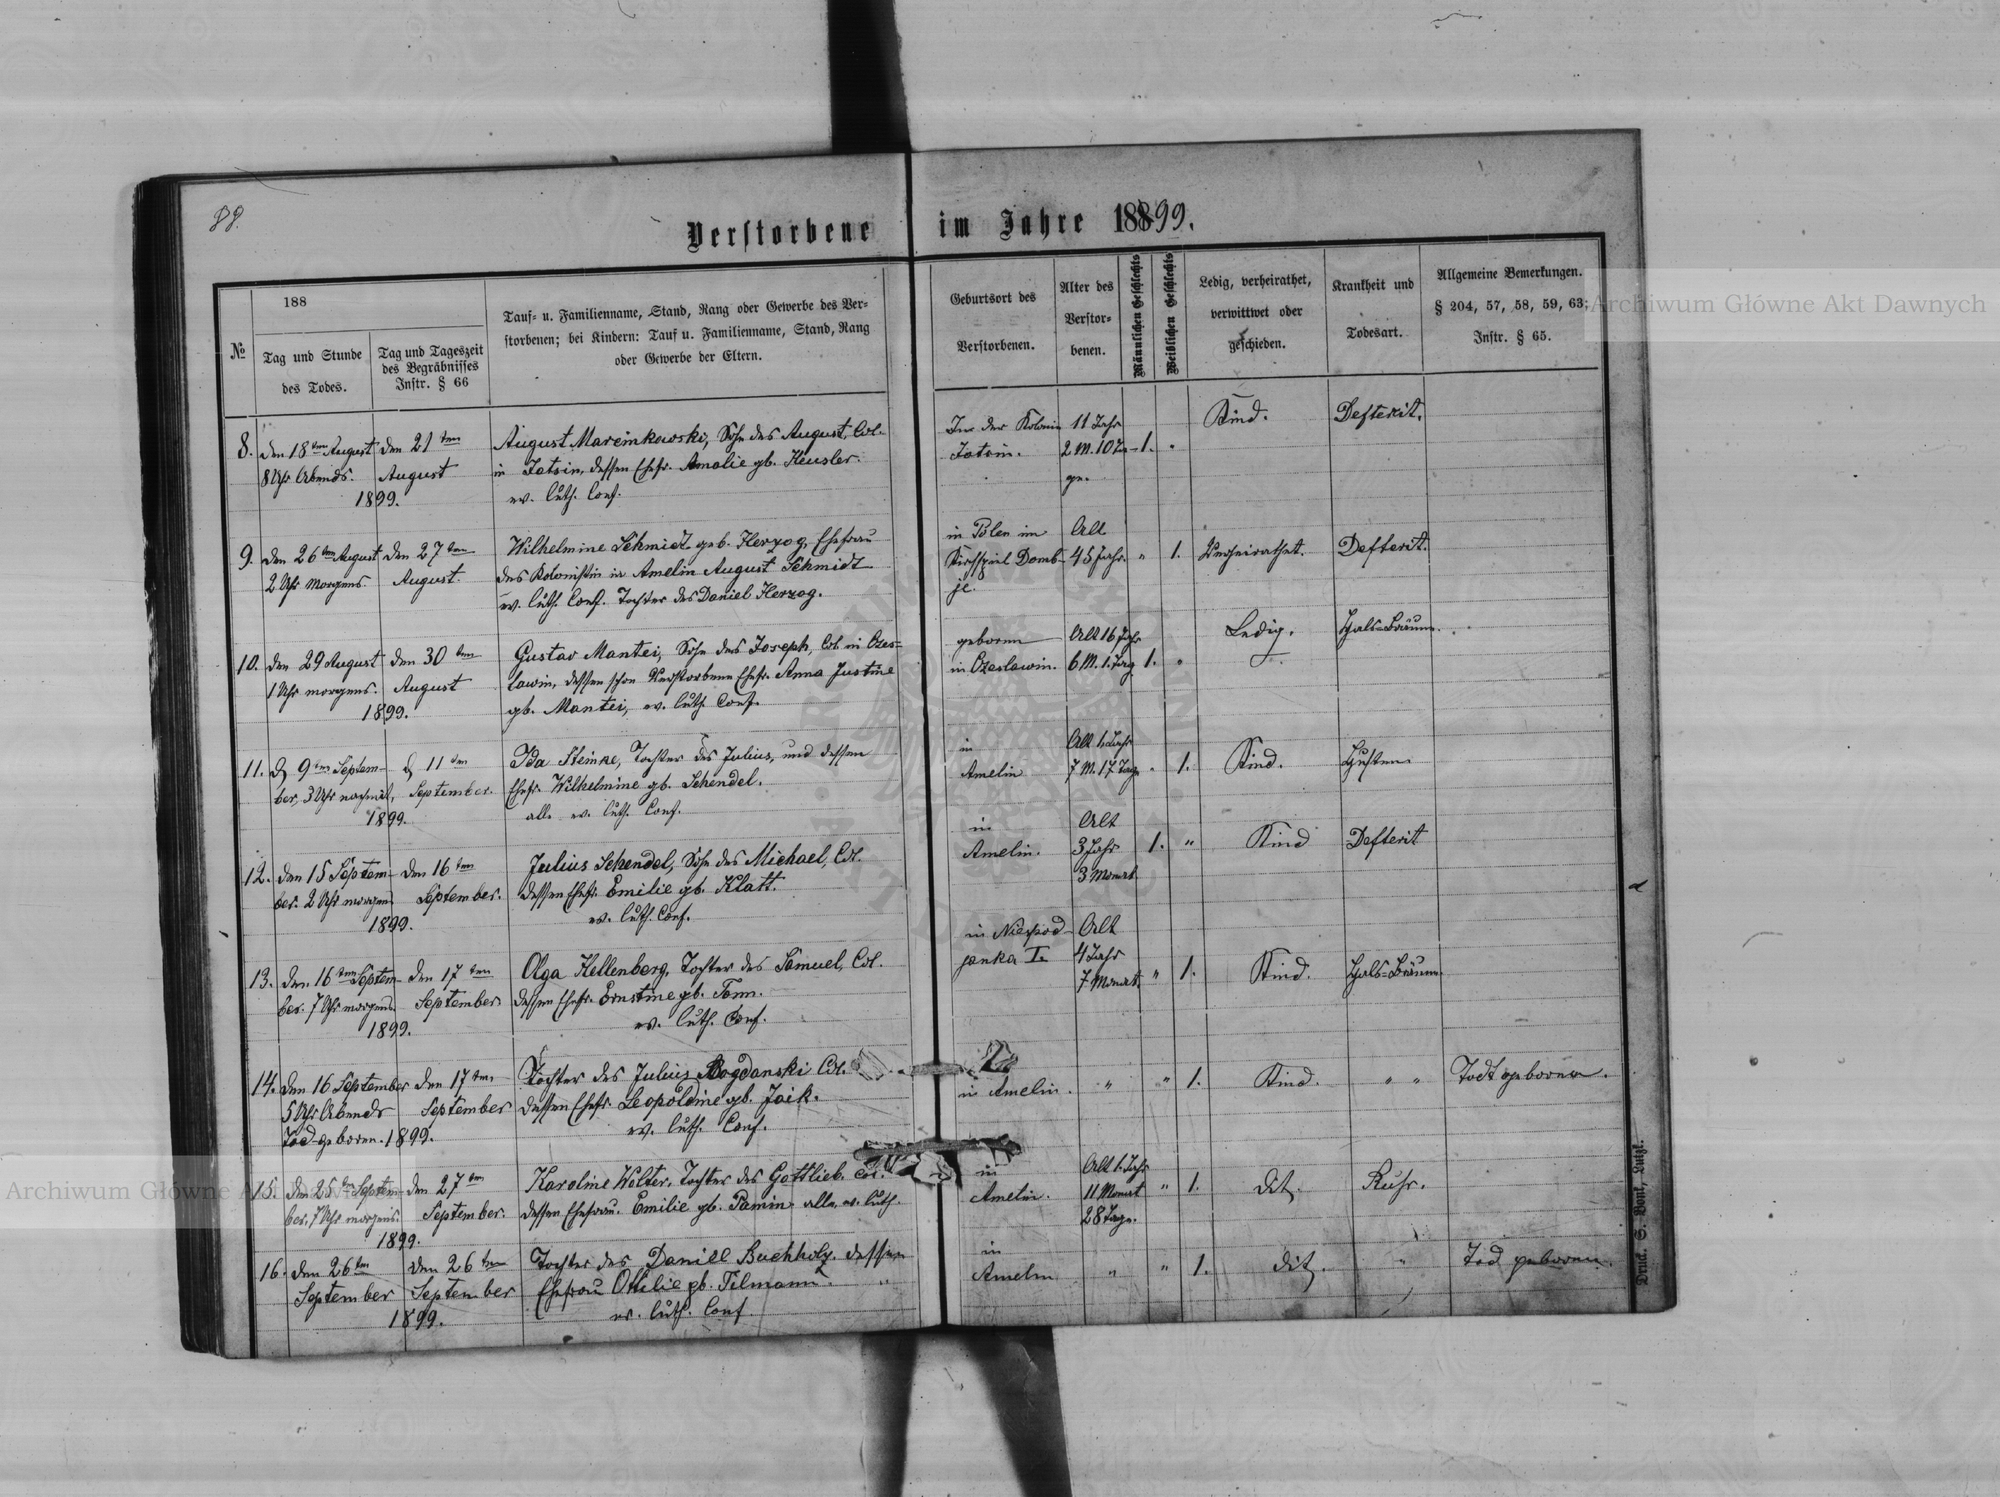 88.
Verstorbene im Jahre 18899.
№
188
Tag und Stunde
des Todes.
Tag und Tageszeit
des Begräbnisses
Instr. § 66
Tauf- u. Familienname, Stand, Rang oder Gewerbe des Ver-
storbenen; bei Kindern: Tauf u. Familienname, Stand, Rang
oder Gewerbe der Eltern.
Geburtsort des
Verstorbenen.
Alter des
Verstor-
benen.
Männlichen Geschlechts
Weiblichen Geschlechts
Ledig, verheirathet,
verwittwet oder
geschieden.
Krankheit und
Todesart.
Allgemeine Bemerkungen.
§ 204, 57, 58, 59, 63;
Instr. § 65.
8.
den 18ten August
8 Uhr Abends.
den 21ten
August
1899.
August Marcinkowski, Sohn des August, Col.
in Jatsin, dessen Ehefr. Amalie gb. Heusler.
ev. luth. Conf.
In der Kolonie
Jatsin.
11 Jahr
2 M. 10 Ta-
ge.
1. "
Kind.
Defterit.
9.
den 26ten August
2 Uhr Morgens.
den 27ten
August.
Wilhelmine Schmidt geb. Herzog, Ehefrau
des Kolonistin in Amelin August Schmidt
ev. luth. Conf. Tochter des Daniel Herzog.
in Polen im
Kirchspiel Domb-
je.
Alt
45 Jahr.
" 1.
Verheirathet.
Defterit.
10.
den 29 August
1 Uhr morgens.
den 30ten
August
1899.
Gustav Mantei, Sohn des Joseph, Col. in Ozes-
lawin, dessen schon Verstorbene Ehefr. Anna Justine
gb. Mantei, ev. luth. Conf.
geboren
in Ozeslawin.
Alt 16 Jahr
6 M. 1. Tag
1. "
Ledig.
Hals-Bräune.
11.
d. 9ten Septem-
ber, 3 Uhr nachmit,
d. 11ten
September.
1899.
Ida Steinke, Tochter des Julius, und dessen
Ehefr. Wilhelmine gb. Schendel.
alle ev. luth. Conf.
in
Amelin
Alt 1. Jahr
7 M. 17 Tage
" 1.
Kind.
Husten.
12.
den 15 Septem-
ber. 2 Uhr morgens
den 16ten
September.
1899.
Julius Schendel, Sohn des Michael, Col.
dessen Ehefr. Emilie gb. Klatt.
ev. luth. Conf.
in
Amelin.
Alt
3 Jahr
3 Monat
1. "
Kind
Defterit
13.
den 16ten Septem-
ber. 7 Uhr morgens
den 17ten
September
1899.
Olga Hellenberg, Tochter des Samuel, Col.
dessen Ehefr. Ernstine gb. Tonn.
ev. luth. Conf.
in Niespod-
janka I.
Alt
4 Jahr
7 Monat.
" 1.
Kind.
Hals-Bräune.
14.
den 16 September
5 Uhr Abends
Tod-geboren.
den 17ten
September
1899.
Tochter des Julius Bogdanski Col.
dessen Ehefr. Leopoldine gb. Jaik.
ev. luth. Conf.
in Amelin.
" " 1.
Kind.
" "
Todt geboren.
15.
den 25ten Septem-
ber. 7 Uhr morgens.
den 27ten
September.
1899.
Karoline Wolter, Tochter des Gottlieb. Col.
dessen Ehefrau. Emilie gb. Pamin alle. ev. luth.
in
Amelin.
Alt 1. Jahr
11 Monat
28 Tage.
" 1.
dit.
Ruhr.
16.
den 26ten
September
den 26ten
September
1899.
Tochter des Daniel Buchholz. dessen
Ehefrau Ottilie gb. Tilmann "
ev. luth. Conf
in
Amelin
" " 1.
dit.
"
Tod geboren.
Druck. S. Bont, Luzk.
Archiwum Główne Akt Dawnych
Archiwum Główne Akt Dawnych